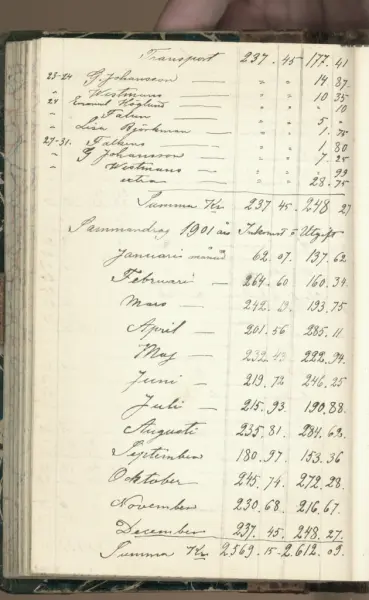 Transport 237.45 177.41
23-24 G. Johansson — " " 14 87.
" Westmans — " " 10 35
24 Emanuel Höglund " " " 10
" Falun — " " 5 "
" Lisa Björkman — " " 1.75
27-31. Falkens — " " 1.80
" G Johansson — " " 7.25
" Westmans — " " " 99
" extra — " " 28.75
Summa Kr 237 45 248 27
Sammandrag 1901 års Inkomst o Utgift
Januari månad 62.07. 137.62
Februari — 264.60 160.34.
Mars — 242. 193.75
April — 201.56 285.11
Maj — 232.43 222.94.
Juni — 219.72 246.25
Juli — 215.93. 190.88.
Augusti 235.81. 284.62.
September 180.97. 153.36
Oktober 245.74. 272.28.
November 230.68. 216.67.
December 237. 45. 248.27.
Summa Kr 2569.15 2.612.09.